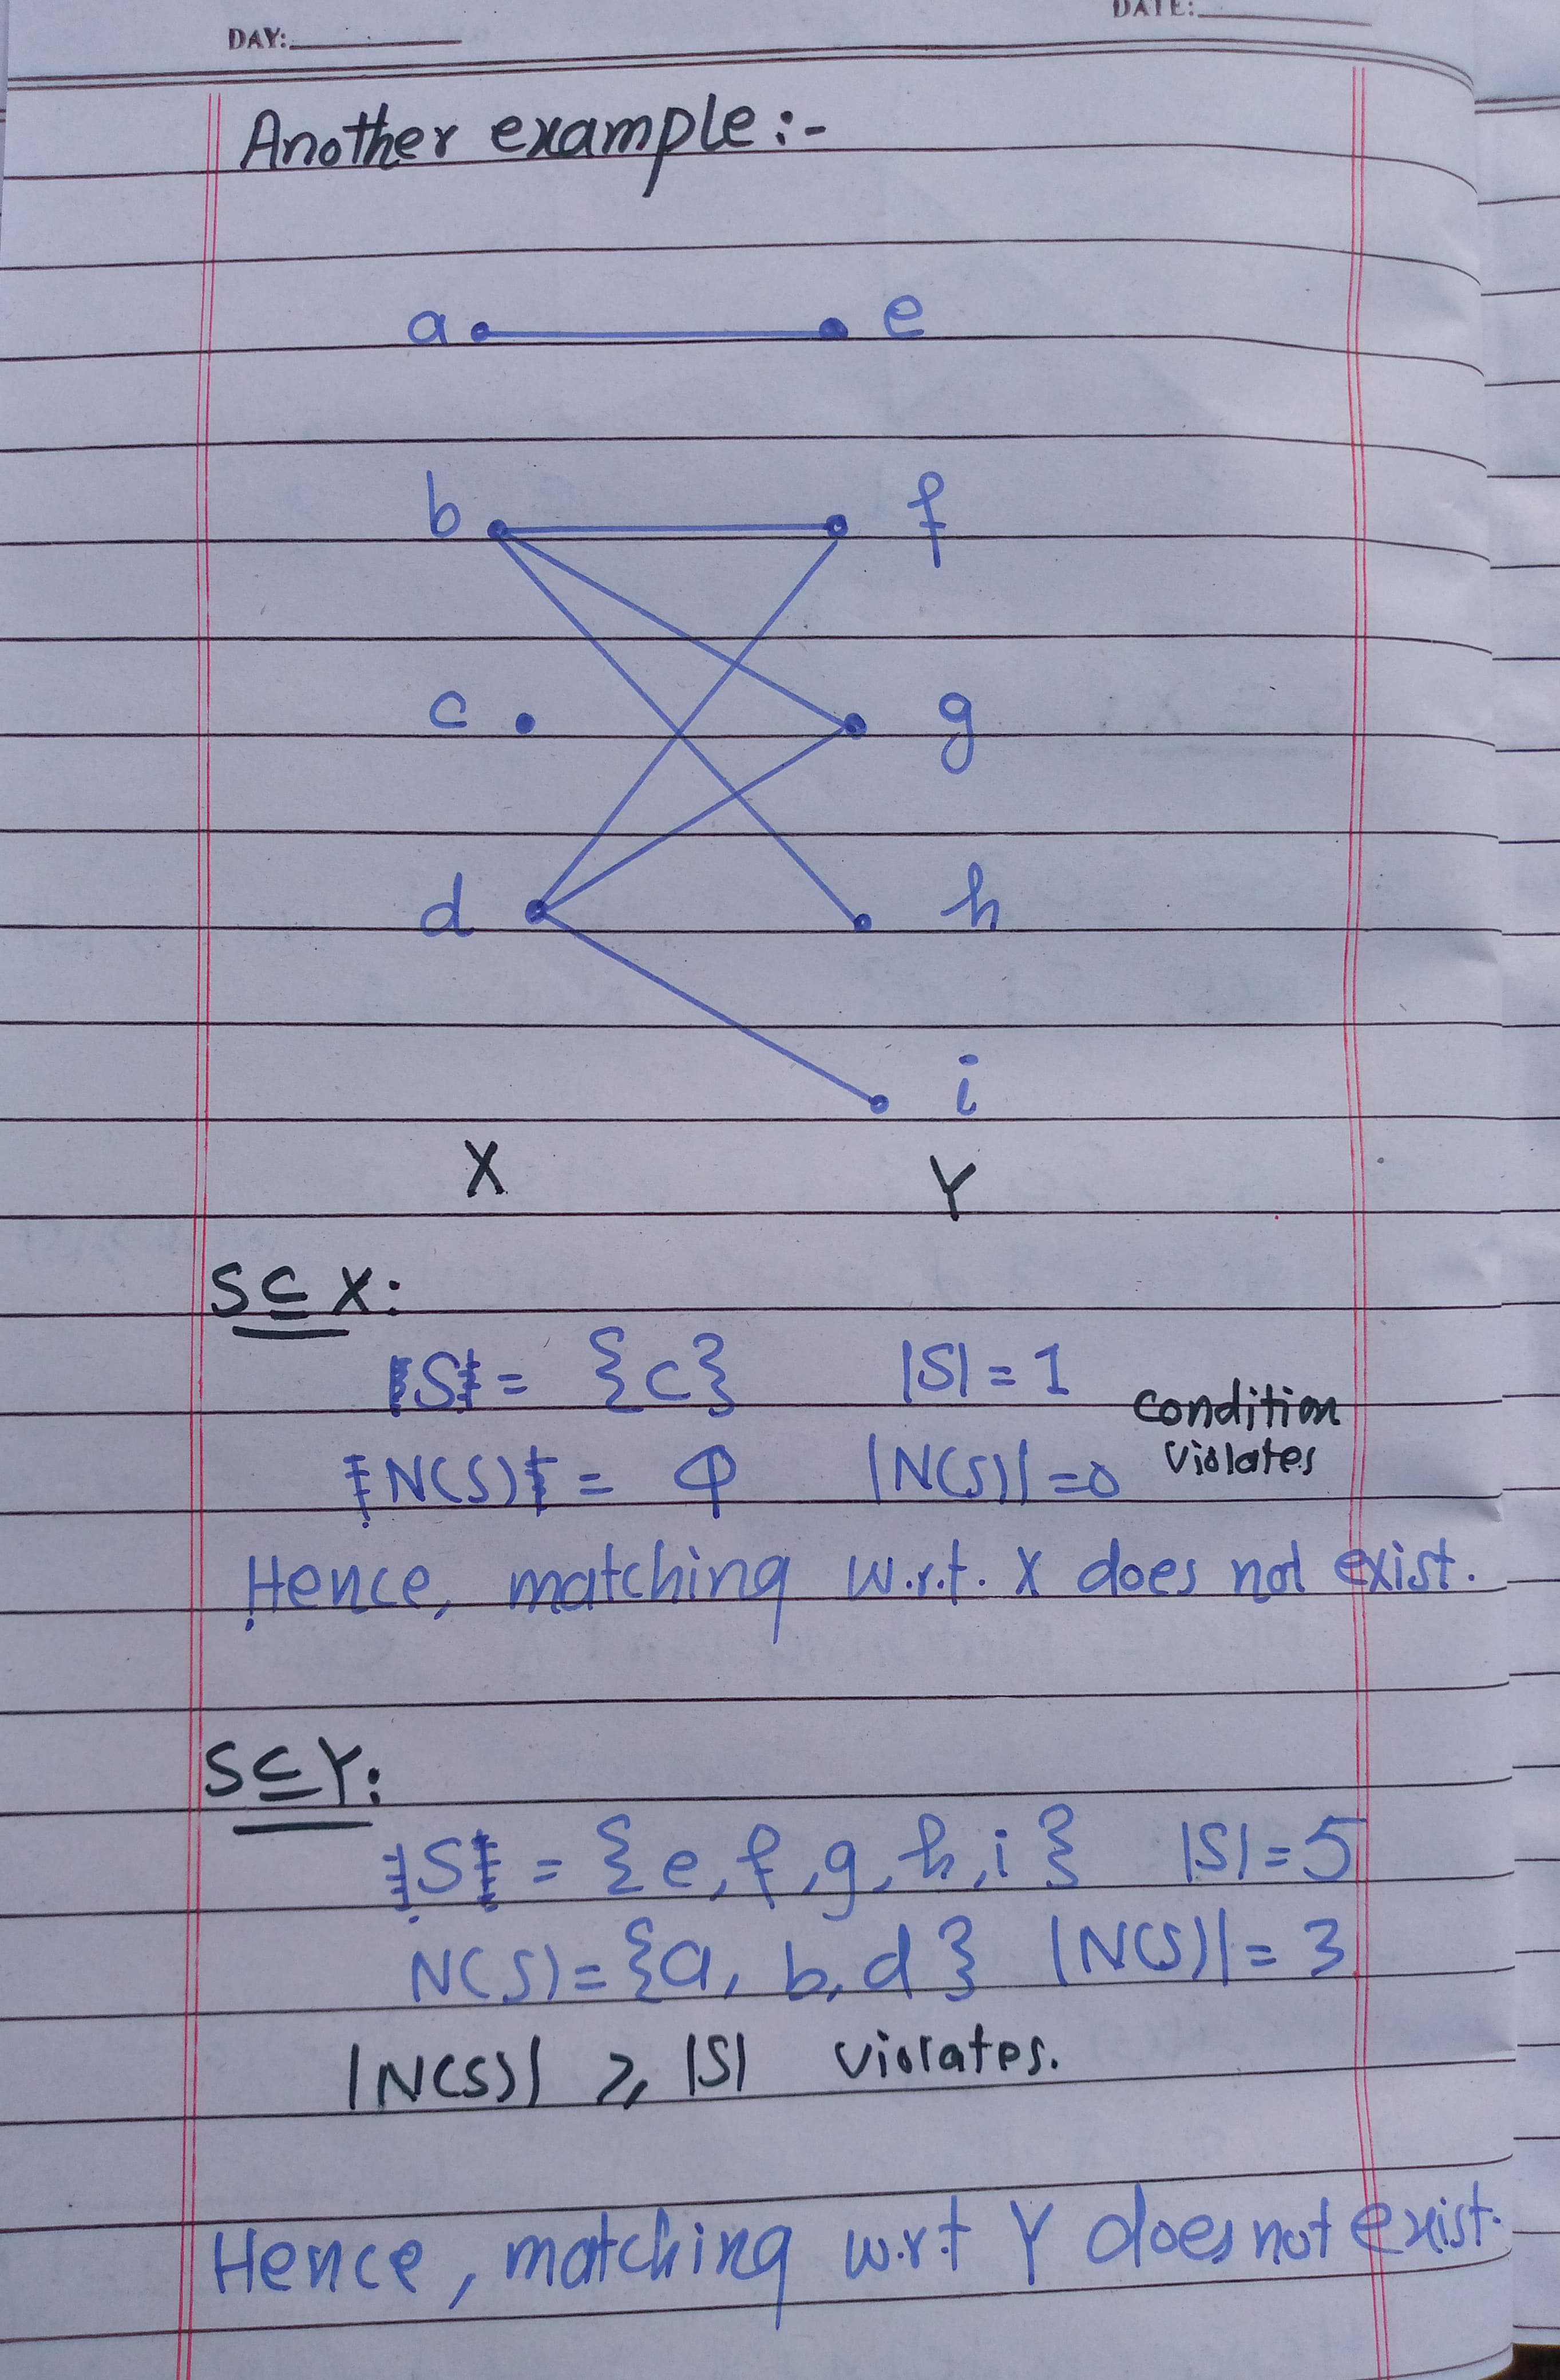 DAY:
DATE:
Another example:-
a e
b f
c g
d h
i
X Y
S ⊆ X:
S = {c} |S| = 1
Condition
N(S) = φ |N(S)| = 0 violates
Hence, matching w.r.t. X does not exist.
S ⊆ Y:
S = {e, f, g, h, i} |S| = 5
N(S) = {a, b, d} |N(S)| = 3
|N(S)| ⩾ |S| violates.
Hence, matching w.r.t Y does not exist.